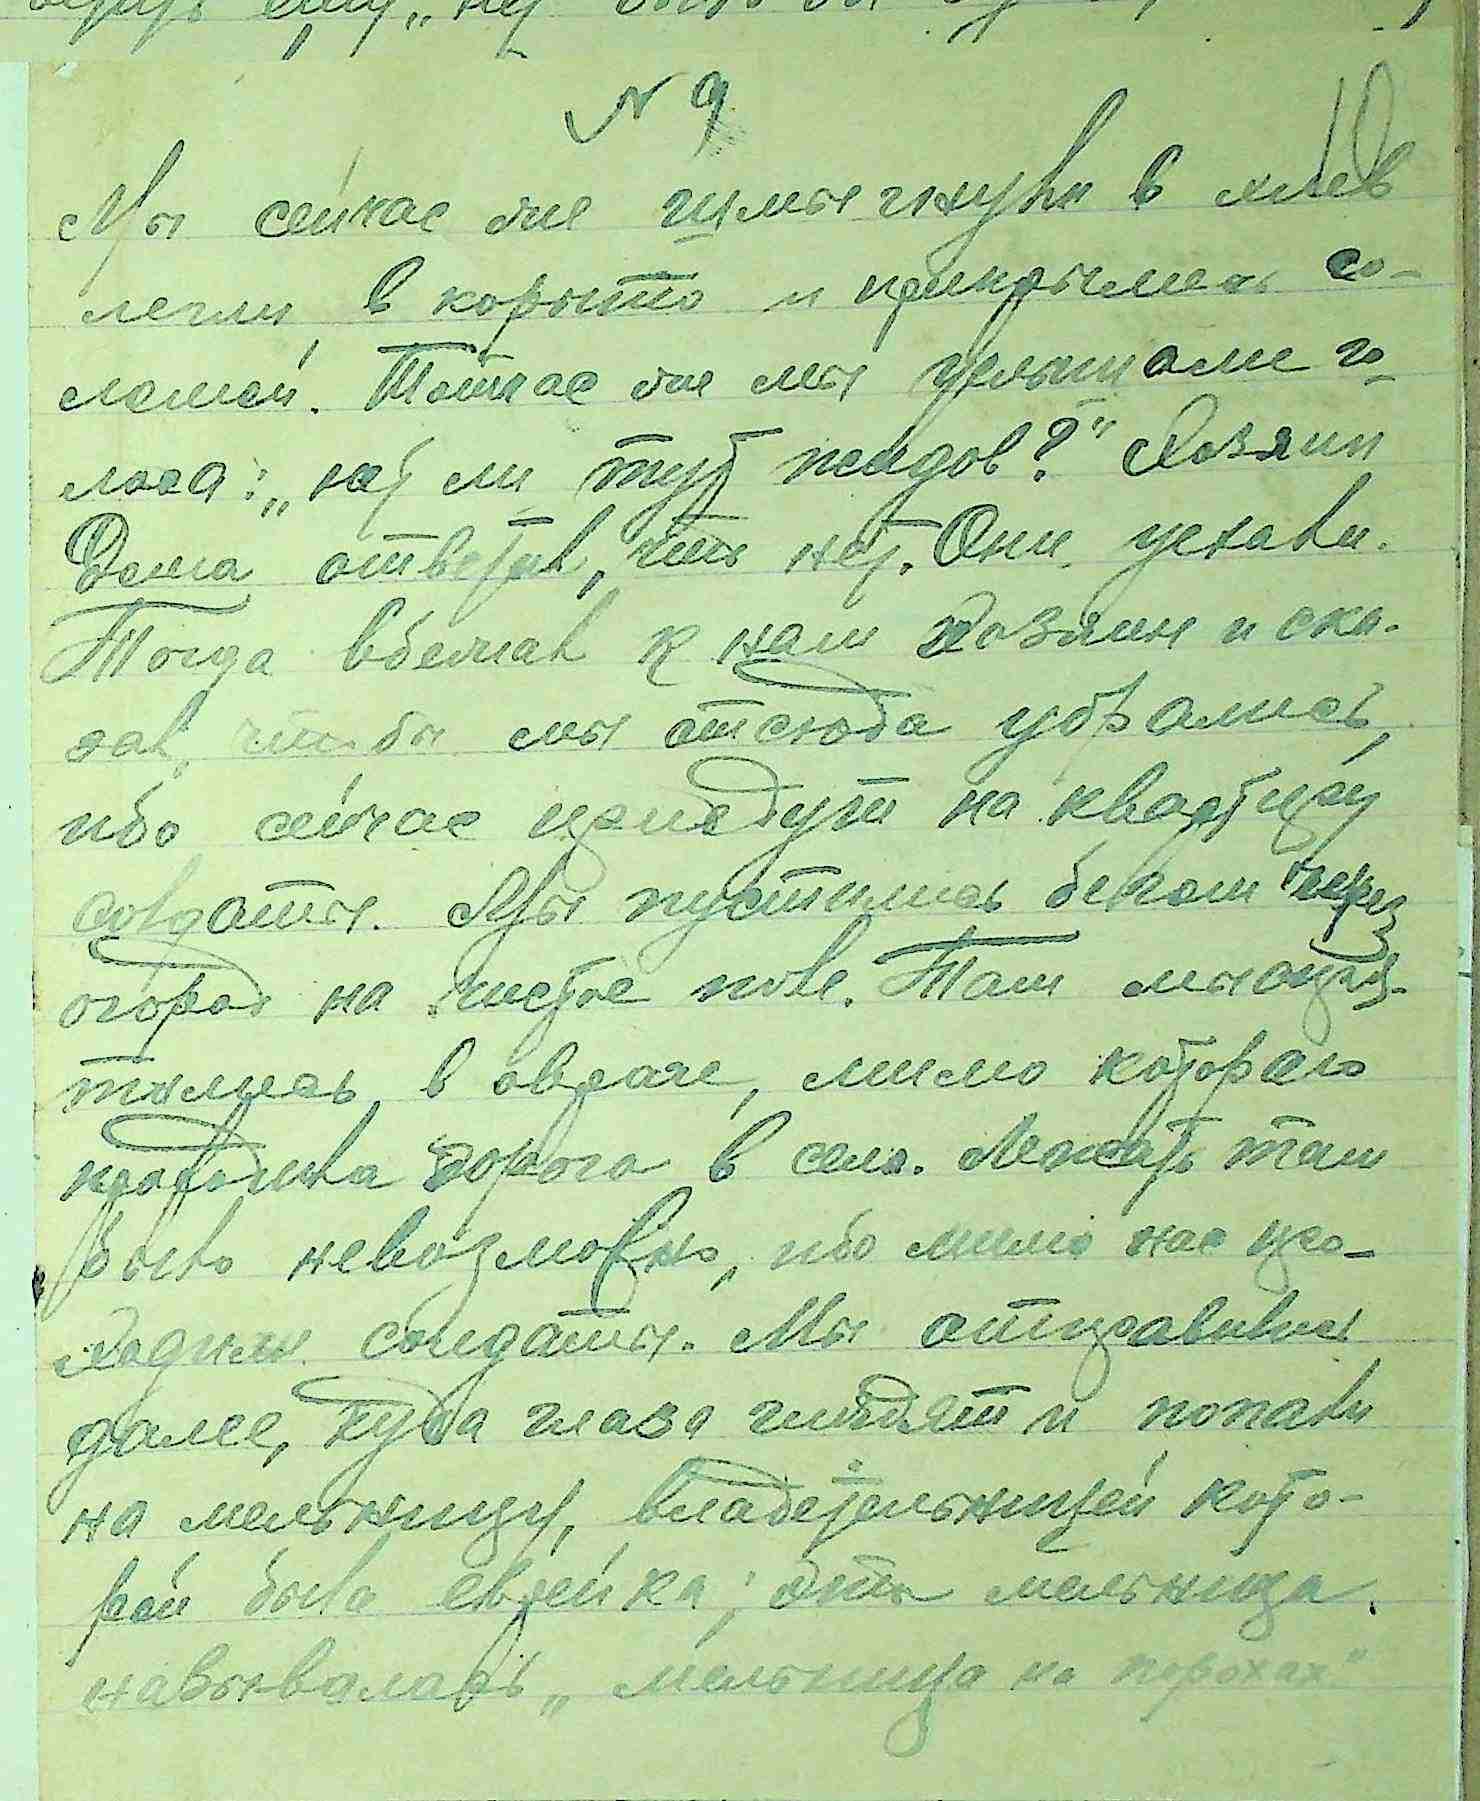 N 9
10
Мы сейчас же шмыгнули в хлев
легли в корыто и прикрылись со-
ломой. Тотчас же мы услышали го-
лоса: „нет ли тут жидов?" Хозяин
Дома ответил, что нет. Они уехали.
Тогда вбежал к нам хозяин и ска-
зал, чтобы мы отсюда убрались,
ибо сейчас приедут на квартиру
солдаты. Мы пустились бегом через
огород на чистое поле. Там мы очу-
тились в овраге, мимо которого
проходила дорога в село. Лежать там
было невозможно, ибо мимо нас про-
ходили солдаты. Мы отправились
далее, куда глаза глядят и попали
на мельницу, владетельницей кото-
рой была еврейка; эта мельница
называлась „мельница на порохах"